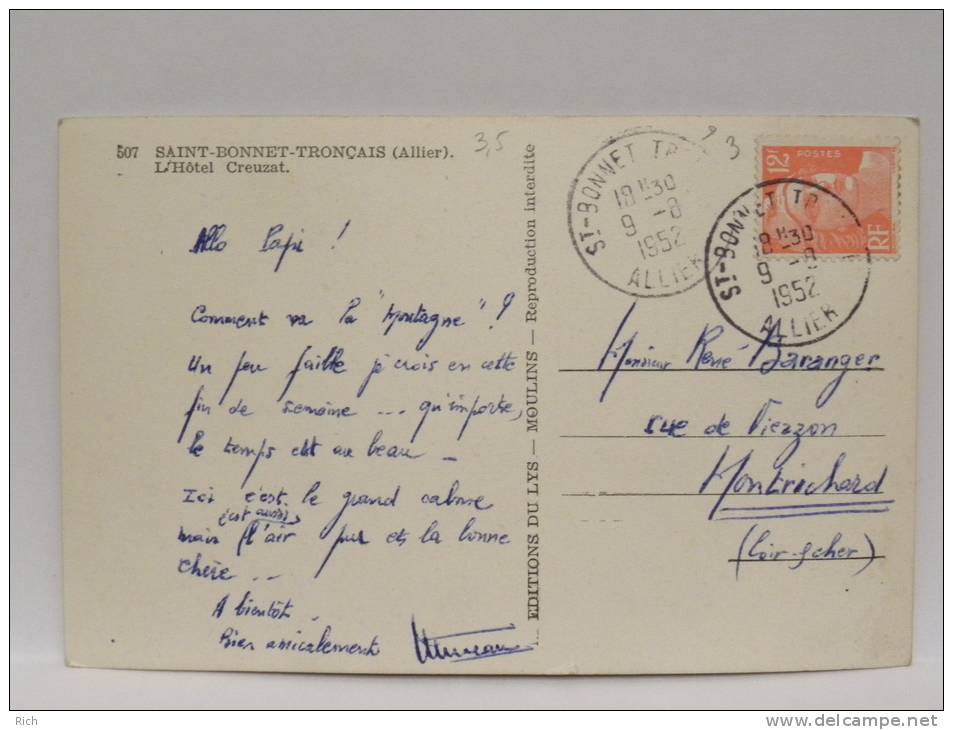 507 SAINT-BONNET-TRONÇAIS (Allier).
L'Hôtel Creuzat.
3,5
3
Allo Papi !
Comment va la "Montagne" ?
Un peu faible je crois en cette
fin de semaine ... qu'importe,
le temps est au beau -
Ici c'est le grand calme
c'est aussi
mais l'air pur et la bonne
chère ..
A bientôt.
Bien amicalement
EDITIONS DU LYS — MOULINS — Reproduction interdite
ST-BONNET TR
18 H30
9 -8
1952
ALLIER
12F
POSTES
RF
ST-BONNET TR
18 H30
9 -8
1952
ALLIER
Monsieur René Baranger
rue de Vierzon
Montrichard
(Loir-&cher)
Rich
www.delcampe.net